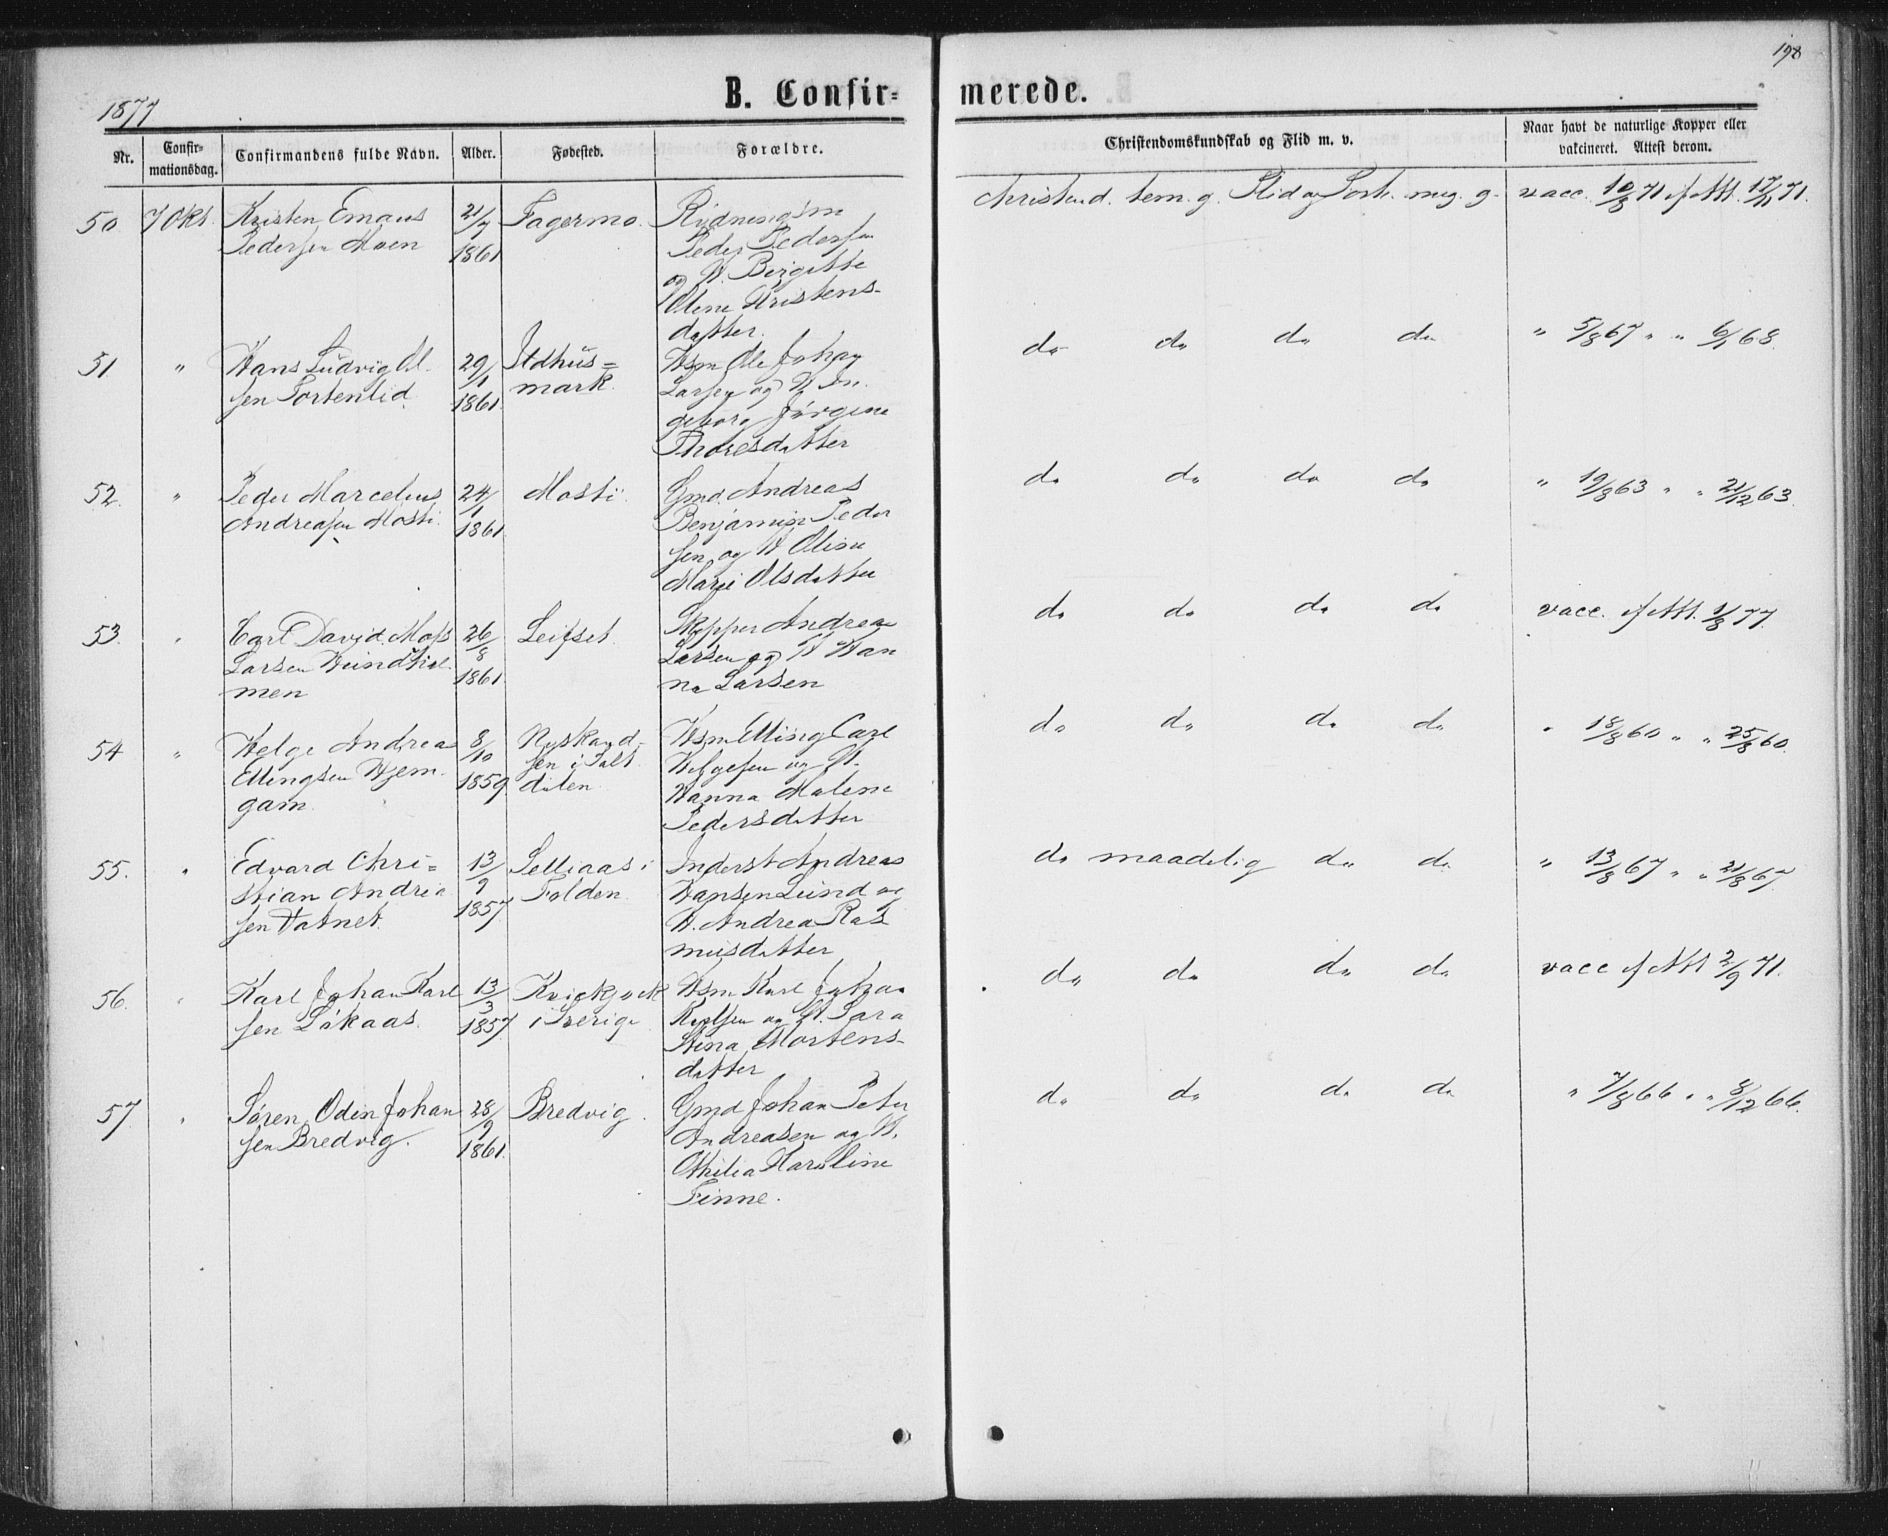 198
1877
B. Confir= merede.
Nr.
Confir-
mationsdag.
Confirmandens fulde Navn.
Alder.
Fødested.
Forældre.
Christendomskundskab og Flid m. v.
Naar havt de naturlige Kopper eller
vakcineret. Attest derom.
50 7 Okt. Kristen Emaus 21/7 Fagermo.
Pedersen Moen 1861
Peder Pedersen
og H. Birgitte
Oline Kristens-
datter.
Christend. tem. g. Flid og Forh. meg. g.
vacc. 10/8 71 if Att. 17/11 71.
51 " Hans Ludvig Ol- 29/1
sen Tortenlid 1861
mark.
Hsm Ole Johan
Larsen og H. In-
geborg Jørgine
Thoresdatter
do do do do " 5/8 67 " " 6/1 68.
52. " Peder Marcelius 24/1 Mosti
Andreasen Mosti. 1861
Gmd. Andreas
Benjamin Peder
sen og H Oline
Marie Olsdatter
do do do do " 19/8 63 " " 21/12 63.
53. " Carl David Moss 26/8 Leifset
Larsen Hundhol- 1861
men
Skipper Andreas
Larsen og H Han
na Larsen
do do do do vacc. if Att. 1/8 77.
54 " Helge Andrea 8/10
Ellingsen Hjem- 1859
gam
sen i Salt
dalen
Hsm Elling Carl
Helgesen og H.
Hanna Malene
Pedersdatter
do do do do " 18/8 60 " " 25/8 60.
55. " Edvard Chri= 13/9 Selliaas i
stian Andrea 1857 Folden
sen Vatnet.
Inderst Andreas
Hansen Lund og
H. Andrea Ras
musdatter
do maadelig do do " 13/8 67 " " 21/8 67.
56. " Karl Johan Karl 13/3 Kvickjock
sen Løkaas. 1857 i Sverige
Hsm Karl Johan
Karlsen og H. Sara
Stina Mortens-
datter
do do do do vacc if Att 2/9 71.
57. " Søren Odin Johan 28/9 Bredvig.
sen Bredvig. 1861.
Gmd Johan Peter
Andreasen og H.
Othilia Karoline
Finne.
do do do do " 7/8 66 " " 8/12 66.